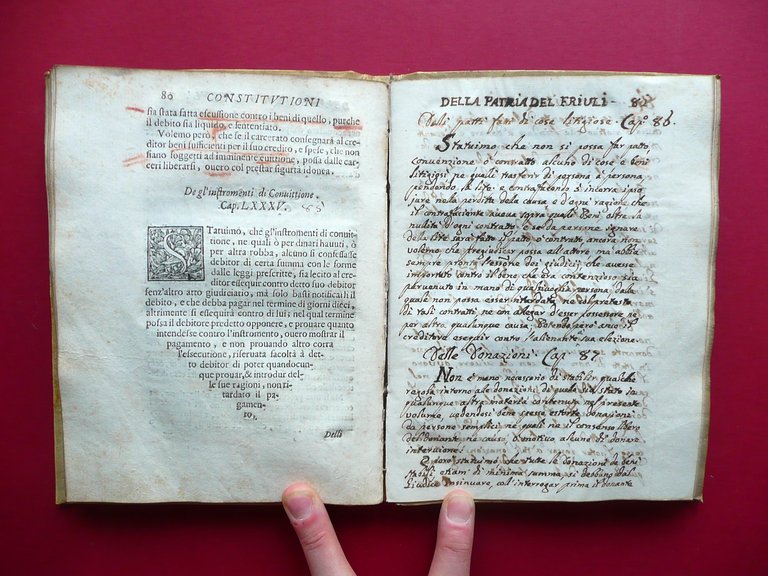 80 CONSTITVTIONI
sia stata fatta escussione contro i beni di quello, purche
il debito sia liquido, e sententiato.
Volemo però, che se il carcerato consegnarà al cre-
ditor beni sufficienti per il suo credito, e spese, che non
siano soggetti ad imminente euittione, possa dalle car-
ceri liberarsi, ouero col prestar sigurtà idonea.
De gl'instromenti di Conuittione.
Cap. LXXXV. 85
STatuimo, che gl'instromenti di conuit-
tione, ne quali ò per dinari hauuti, ò
per altra robba, alcuno si confessasse
debitor di certa summa con le forme
dalle leggi prescritte, sia lecito al cre-
ditor esseguir contro detto suo debitor
senz'altro atto giudiciario, mà solo basti notificarli il
debito, e che debba pagar nel termine di giorni dieci,
altrimente si essequirà contro di lui; nel qual termine
possa il debitore predetto opponere, e prouare quanto
intendesse contro l'instromento, ouero mostrar il
pagamento, e non prouando altro corra
l'essecutione, riseruata facoltà à det-
to debitor di poter quandocun-
que prouar, & introdur del-
le sue ragioni, non ri-
tardato il pa-
gamen-
to.
Delli
DELLA PATRIA DEL FRIULI
Delli patti fatti di cose litigiose. Cap.º 86.
Statuimo che non si possa far patto,
convenzione ò contratto alcuno di cose e beni
litigiosi ne quali trasferir di persona à persona,
pendendo la lite, e contrafacendo s'incorra ipso
jure nella perdita della causa e d'ogni ragione che
il contrafaciente aveva sopra quelli Beni oltre la
nullità d'ogni contratto e se da persone ignare
della lite sarà fatto il patto ò contratto ancora non
volemo che pregiudicar possa all'attore mà abbia
sempre
importato contro il bene che era contenzioso sia
pervenuto in mano di qualsivoglia persona dalla
quale non possa esser intardato, ne col pretesto
di tali contratti, ne con allegar d'esser possessore ne
per altra qualunque causa, potendo però anco il
creditore eseguir contro l'alienante a sua elezione.
Delle Donazioni. Cap. 87.
Non è meno necessario di statuir qualche
regola intorno alle donazioni di quello sia stato in
qualunque altra materia contenuta nel presente
volume, vedendosi bene spesso estorte donazioni
da persone semplici, ne quali ne il consenso libero
del donante, ne causa, ò motivo alcuno di donare
interviene:
E però statuimo, che tutte le Donazioni de beni
stabili etiam di minima summa si debbano dal
Giudice insinuare, coll'interrogar prima il donante